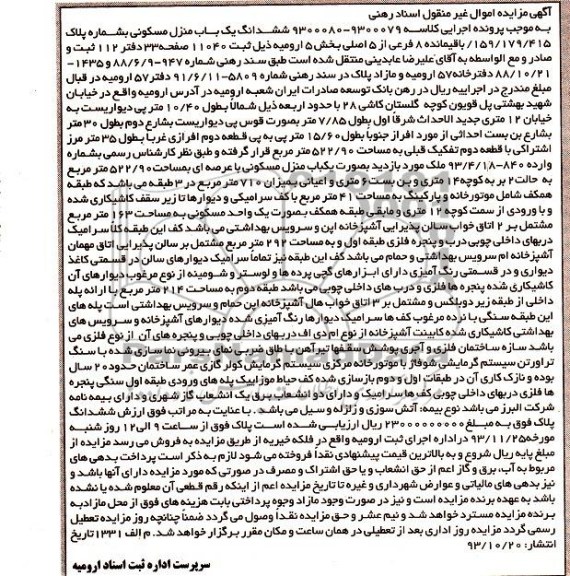 آگهی مزایده اموال غیر منقول اسناد رهنی
به موجب پرونده اجرایی کلاسه ۹۳۰۰۰۷۹-۹۳۰۰۰۸۰ ششدانگ یک باب منزل مسکونی بشماره پلاک
۱۵۹/۱۷۹/۴۱۵/ باقیمانده ۸ فرعی از ۵ اصلی بخش ۵ ارومیه ذیل ثبت ۱۱۰۴۰ صفحه ۳۳ دفتر ۱۱۲ ثبت و
صادر و مع الواسطه به آقای علیرضا عابدینی منتقل شده است طبق سند رهنی شماره ۹۴۷-۸۸/۶/۹ و ۱۴۳۵-
۸۸/۱۰/۲۱ دفترخانه ۵۷ ارومیه و مازاد پلاک در سند رهنی شماره ۵۸۰۹-۹۱/۶/۱۱ دفتر ۵۷ ارومیه در قبال
مبلغ مندرج در اجراییه ریال در رهن بانک توسعه صادرات ایران شعبه ارومیه در آدرس ارومیه واقع در خیابان
شهید بهشتی پل قویون کوچه گلستان کاشی ۲۸ با حدود اربعه ذیل شمالا بطول ۱۰/۴۰ متر پی دیواریست به
خیابان ۱۲ متری جدید الاحداث شرقا اول بطول ۷/۸۵ متر بصورت قوس پی دیواریست بشارع دوم بطول ۳۰ متر
بشارع بن بست احداثی از مورد افراز جنوبا بطول ۱۵/۶۰ متر پی به پی قطعه دوم افرازی غربا بطول ۳۵ متر مرز
اشتراکی با قطعه دوم تفکیک قبلی به مساحت ۵۲۲/۹۰ متر مربع قرار گرفته و طبق نظر کارشناس رسمی بشماره
وارده ۸۴۰-۹۳/۴/۱۸ ملک مورد بازدید بصورت یکباب منزل مسکونی با عرصه ای بمساحت ۵۲۲/۹۰ متر مربع
به حالت ۲ بر به کوچه ۱۴ متری و بن بست ۶ متری و اعیانی بمیزان ۷۱۰ متر مربع در ۳ طبقه می باشد که طبقه
همکف شامل موتورخانه و پارکینگ به مساحت ۴۱ متر مربع با کف سرامیکی و دیوارها تا زیر سقف کاشیکاری شده
و با ورودی از سمت کوچه ۱۲ متری و مابقی طبقه همکف بصورت یک واحد مسکونی به مساحت ۱۶۳ متر مربع
مشتمل بر ۲ اتاق خواب سالن پذیرایی آشپزخانه اپن و سرویس بهداشتی می باشد کف این طبقه کلا سرامیک
دربهای داخلی چوبی درب و پنجره فلزی طبقه اول و به مساحت ۲۹۲ متر مربع مشتمل بر سالن پذیرایی اتاق مهمان
آشپزخانه ام سرویس بهداشتی و حمام می باشد کف این طبقه نیز تماما سرامیک دیوارهای سالن در قسمتی کاغذ
دیواری و در قسمتی رنگ آمیزی دارای ابزارهای گچی پرده ها و لوستر و شومینه از نوع مرغوب دیوارهای آن
کاشیکاری شده پنجره ها فلزی و درب های داخلی چوبی می باشد طبقه دوم به مساحت ۲۱۴ متر مربع با ارائه پله
داخلی از طبقه زیر دوبلکس و مشتمل بر ۳ اتاق خواب هال آشپزخانه اپن حمام و سرویس بهداشتی است پله های
این طبقه سنگی با نرده مرغوب کف ها سرامیک دیوارها رنگ آمیزی شده دیوارهای آشپزخانه و سرویس های
بهداشتی کاشیکاری شده کابینت آشپزخانه از نوع ام دی اف دربهای داخلی چوبی و پنجره های آن از نوع فلزی می
باشد سازه ساختمان فلزی و آجری پوشش سقفها تیرآهن با طاق ضربی با نمای بیرونی بازسازی شده با سنگ
تراورتن سیستم گرمایشی شوفاژ با موتورخانه مرکزی سیستم گرمایش کولر گازی عمر ساختمان حدود ۲۰ سال
بوده و نازک کاری آن در طبقات اول و دوم بازسازی شده کف حیاط موزاییک پله های ورودی طبقه اول سنگی پنجره
ها فلزی دربهای داخلی چوبی کف ها سرامیک و دارای دو انشعاب برق یک انشعاب گاز شهری و دارای بیمه نامه
شرکت البرز می باشد نوع بیمه: آتش سوزی و زلزله و سیل می باشد. با عنایت به مراتب فوق ارزش ششدانگ
پلاک فوق به مبلغ ۲۳۰۰۰۰۰۰۰۰۰ ریال ارزیابی شده است پلاک فوق از ساعت ۹ الی ۱۲ روز شنبه
مورخه ۹۳/۱۱/۲۵ در اداره اجرای ثبت ارومیه واقع در فلکه خیریه از طریق مزایده به فروش می رسد مزایده از
مبلغ پایه ریال شروع و به بالاترین قیمت پیشنهادی نقدا فروخته می شود لازم به ذکر است پرداخت بدهی های
مربوط به آب، برق و گاز اعم از حق انشعاب و یا حق اشتراک و مصرف در صورتی که مورد مزایده دارای آنها باشد و
نیز بدهی های مالیاتی و عوارض شهرداری و غیره تا تاریخ مزایده اعم از اینکه رقم قطعی آن معلوم شده یا نشده
باشد به عهده برنده مزایده است و نیز در صورت وجود مازاد وجوه پرداختی بابت هزینه های فوق از محل مازاد به
برنده مزایده مسترد خواهد شد و نیم عشر و حق مزایده نقدا وصول می گردد ضمنا چنانچه روز مزایده تعطیل
رسمی گردد مزایده روز اداری بعد از تعطیلی در همان ساعت و مکان مقرر برگزار خواهد شد. م الف ۱۳۳۱ تاریخ
انتشار: ۹۳/۱۰/۲۰
سرپرست اداره ثبت اسناد ارومیه